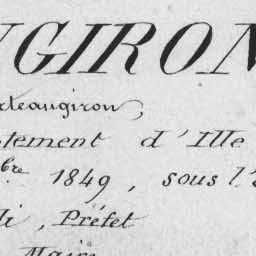 UGIRON
rteaugiron,
tement d'Ille
bre 1849, sous l'
di, Préfet
Maire